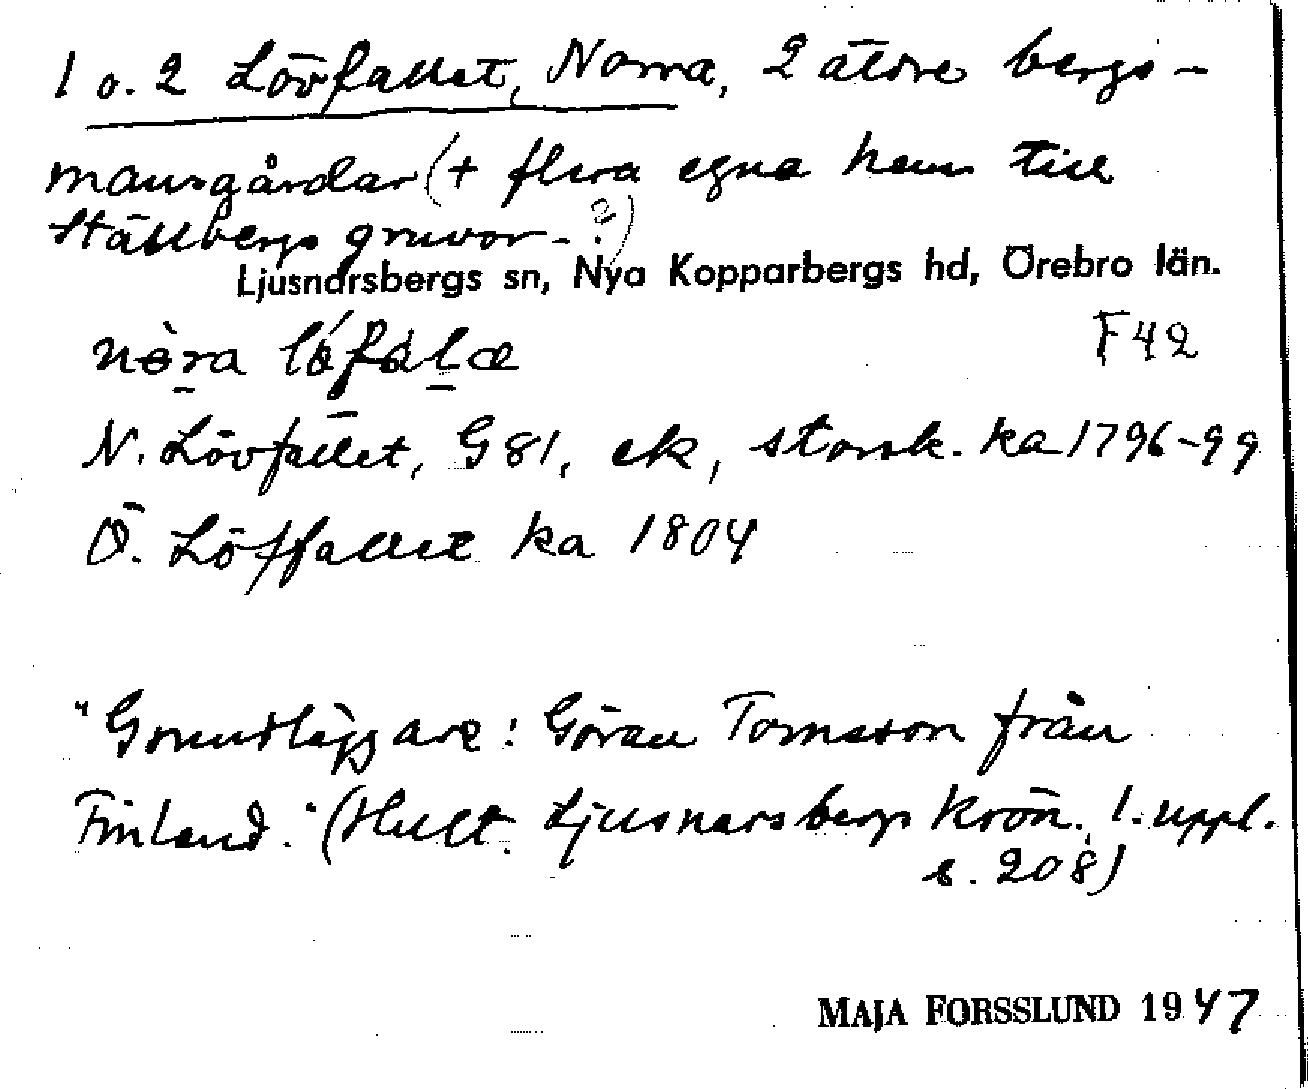 1 o. 2 Lövfallet, Norra, 2 äldre bergs-
mansgårdar (+ flera egna hem till
Ställbergs gruvor - ?)
Ljusnarsbergs sn, Nya Kopparbergs hd, Örebro län.
F42
N. Lövfallet, G 81, ek, storsk. ka 1796-99
Ö. Löffallet ka 1804
"Grundläggare: Göran Tomsson från
Finland." (Hult. Ljusnarsbergs krön., 1. uppl.
s. 208)
MAJA FORSSLUND 1947